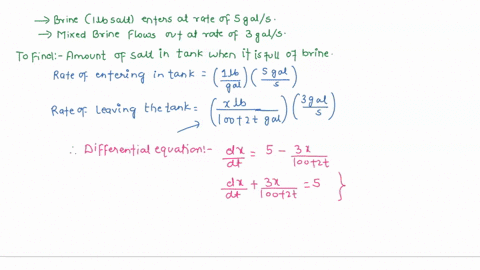 → Brine (1lb salt) enters at rate of 5 gal/s.
→ Mixed Brine Flows out at rate of 3 gal/s.
To Find:- Amount of salt in tank when it is full of brine.
Rate of entering in tank = (1lb/gal) (5gal/s)
Rate of Leaving the tank = (x lb/100+2t gal) (3gal/s)
∴ Differential equation:- dx/dt = 5 - 3x/100+2t
dx/dt + 3x/100+2t = 5 }